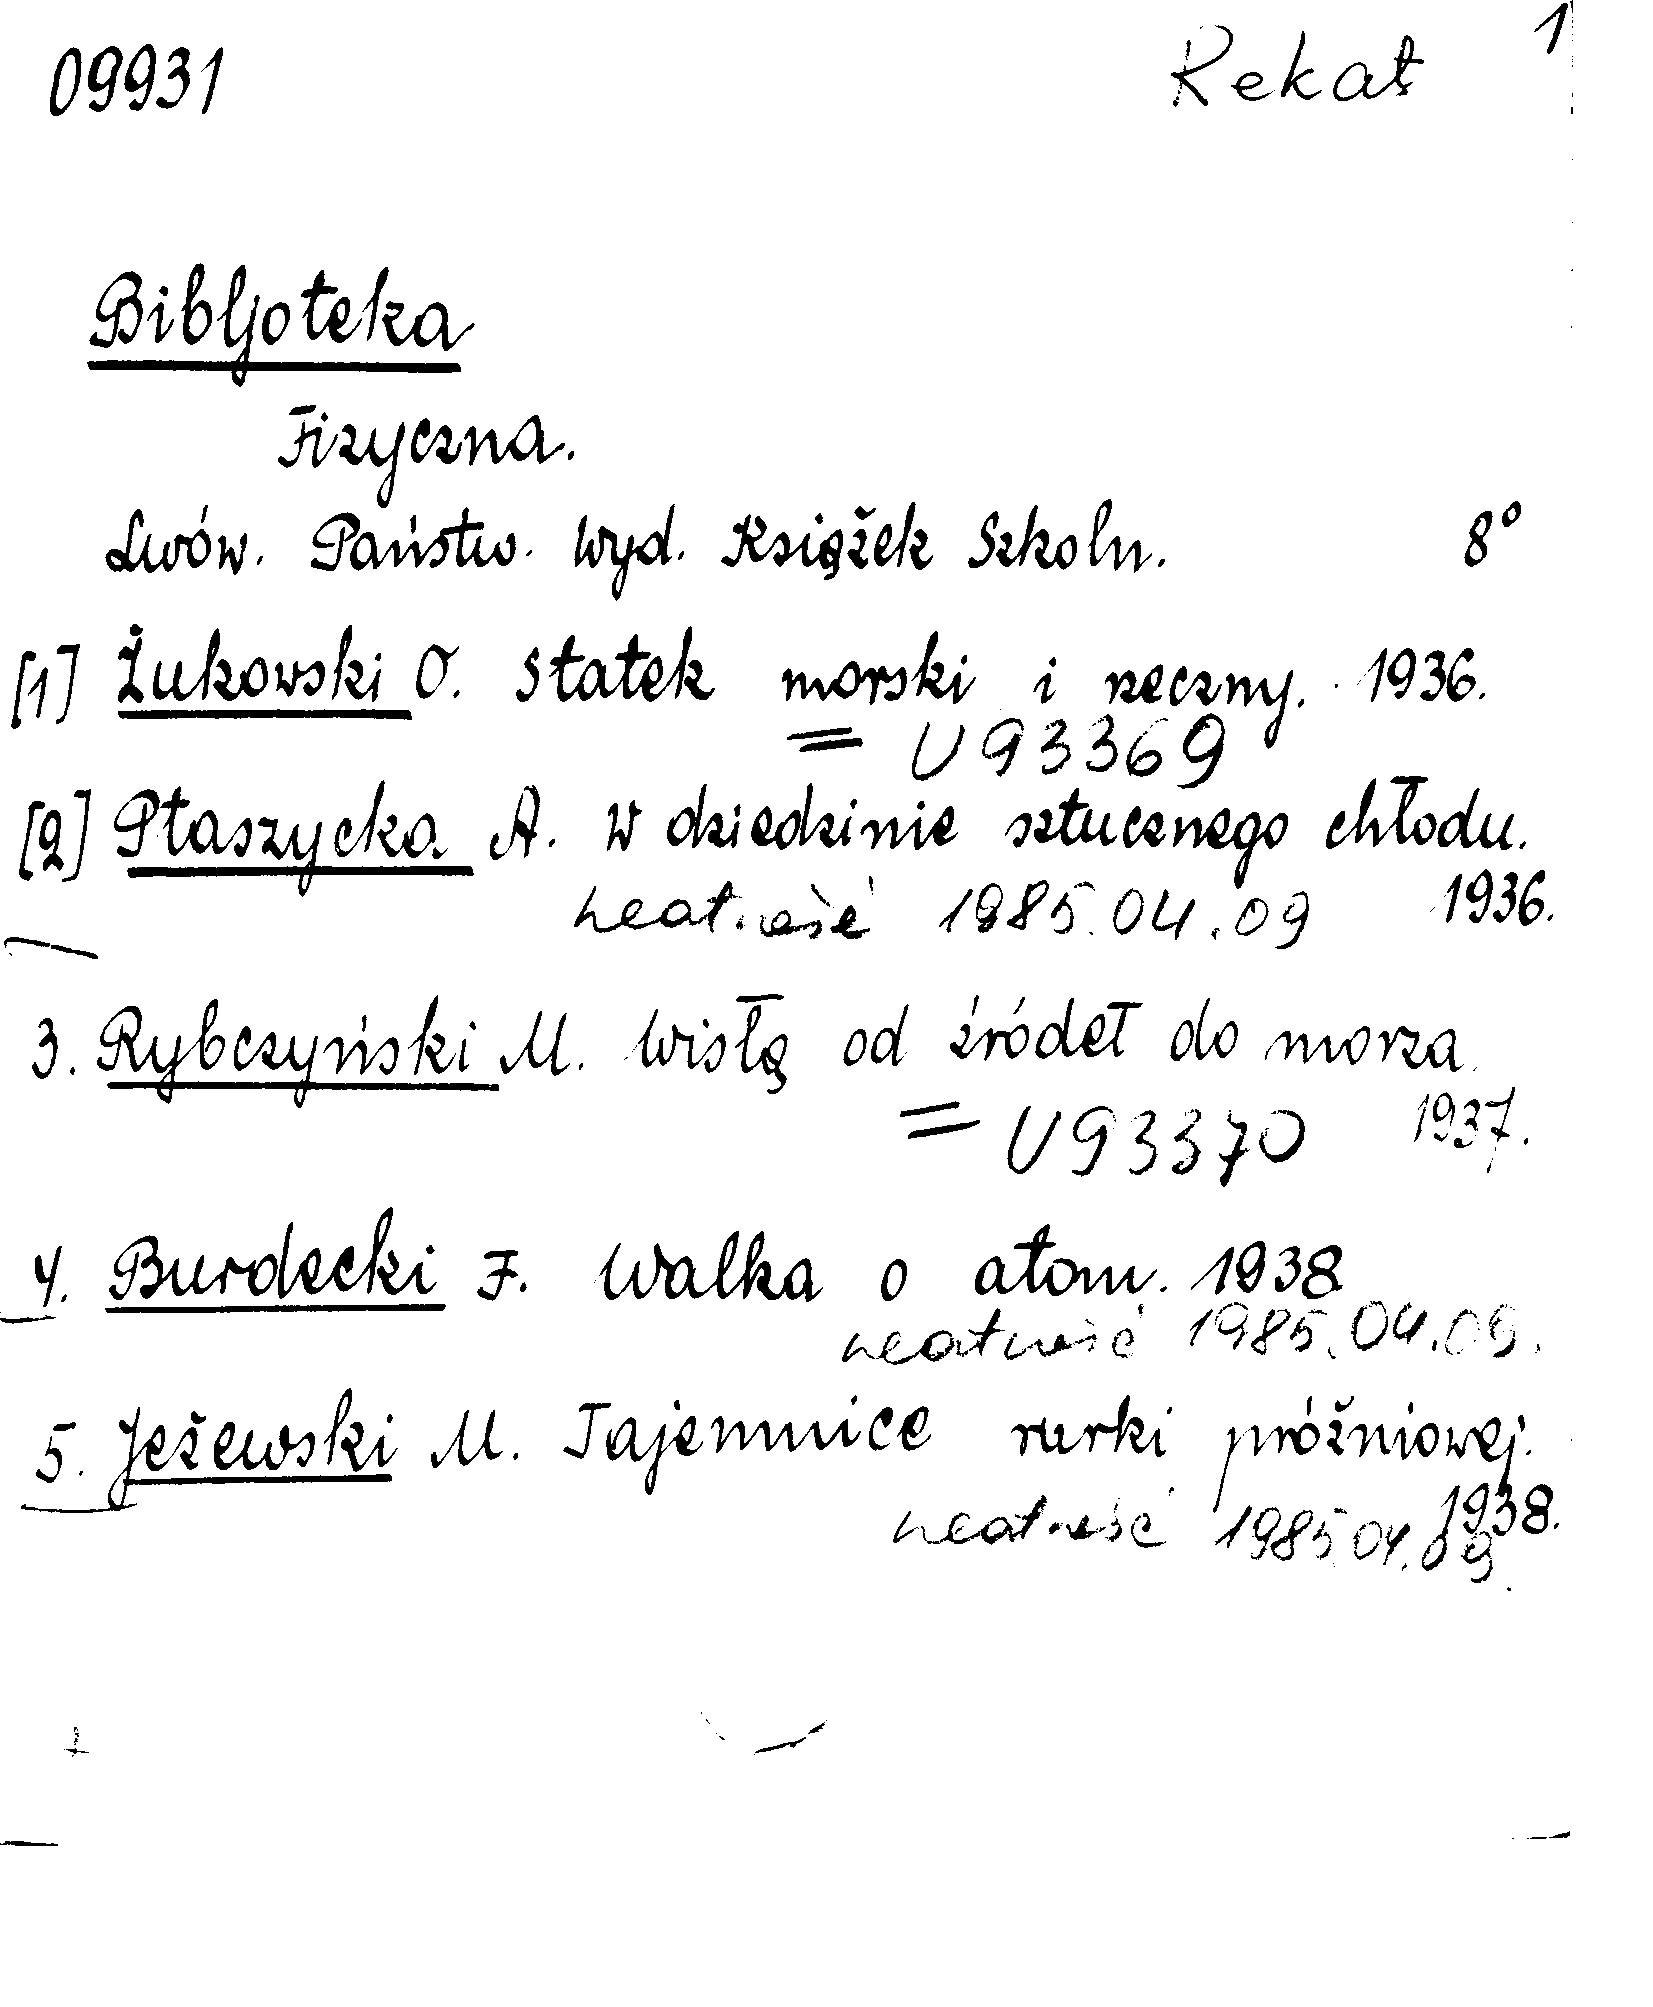 09931 Rekat 1
Bibljoteka
Fizyczna.
Lwów. Państw. Wyd. Książek Szkoln. 8°
[1] Żukowski O. Statek morski i rzeczny. 1936.
= U93369
[2] Ptaszycka A. W dziedzinie sztucznego chłodu.
1985.04.09 1936.
3. Rybczyński M. Wisłą od źródeł do morza
= U93370 1937.
4. Burdecki F. Walka o atom. 1938
1985.04.09.
5. Jeżewski M. Tajemnice rurki próżniowej.
1938.
1985.04.09.